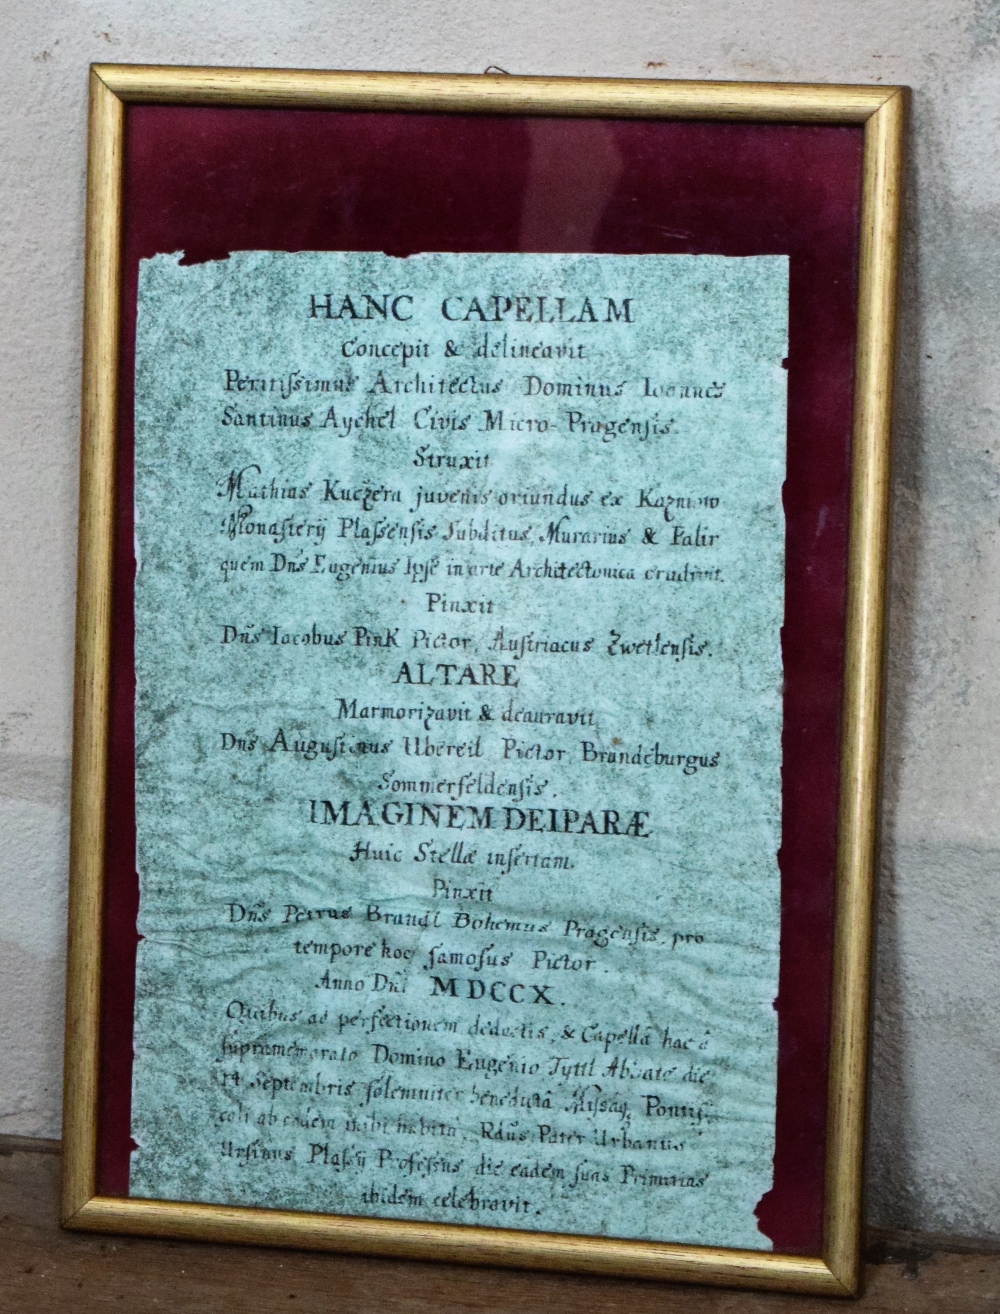 HANC CAPELLAM
Concepit & delineavit
Peritiſsimus Architectus Dominus Ioannes
Santinus Aychel Civis Micro-Pragenſis.
Struxit
Mathias Kuczera juvenis oriundus ex Kaznow
Monaſterij Plaſsenſis Subditus, Murarius & Palir
quem Dn̄s Eugenius Ipſe in arte Architectonica erudivit.
Pinxit
Dn̄s Iacobus Pink Pictor, Auſtriacus Zwetlenſis.
ALTARE
Marmorizavit & deauravit
Dn̄s Auguſtinus Ubereil Pictor Brandeburgus
Sommerſeldenſis.
IMAGINEM DEIPARÆ
Huic Stellæ inſertam.
Pinxit
Dn̄s Petrus Brandl Bohemus Pragenſis, pro
tempore hoc famoſus Pictor.
Anno Dn̄i MDCCX.
Quibus ad perfectionem deductis, & Capellâ hac â
ſupramemorato Domino Eugenio Tyttl Abbate die
14 Septembris ſolemniter benedictâ Miſsaq̨ Pontifi-
cali ab eodem inibi habita, Rdūs Pater Urbanus
Urſinus Plaſsij Profeſsus die eadem ſuas Primitias
ibidem celebravit.